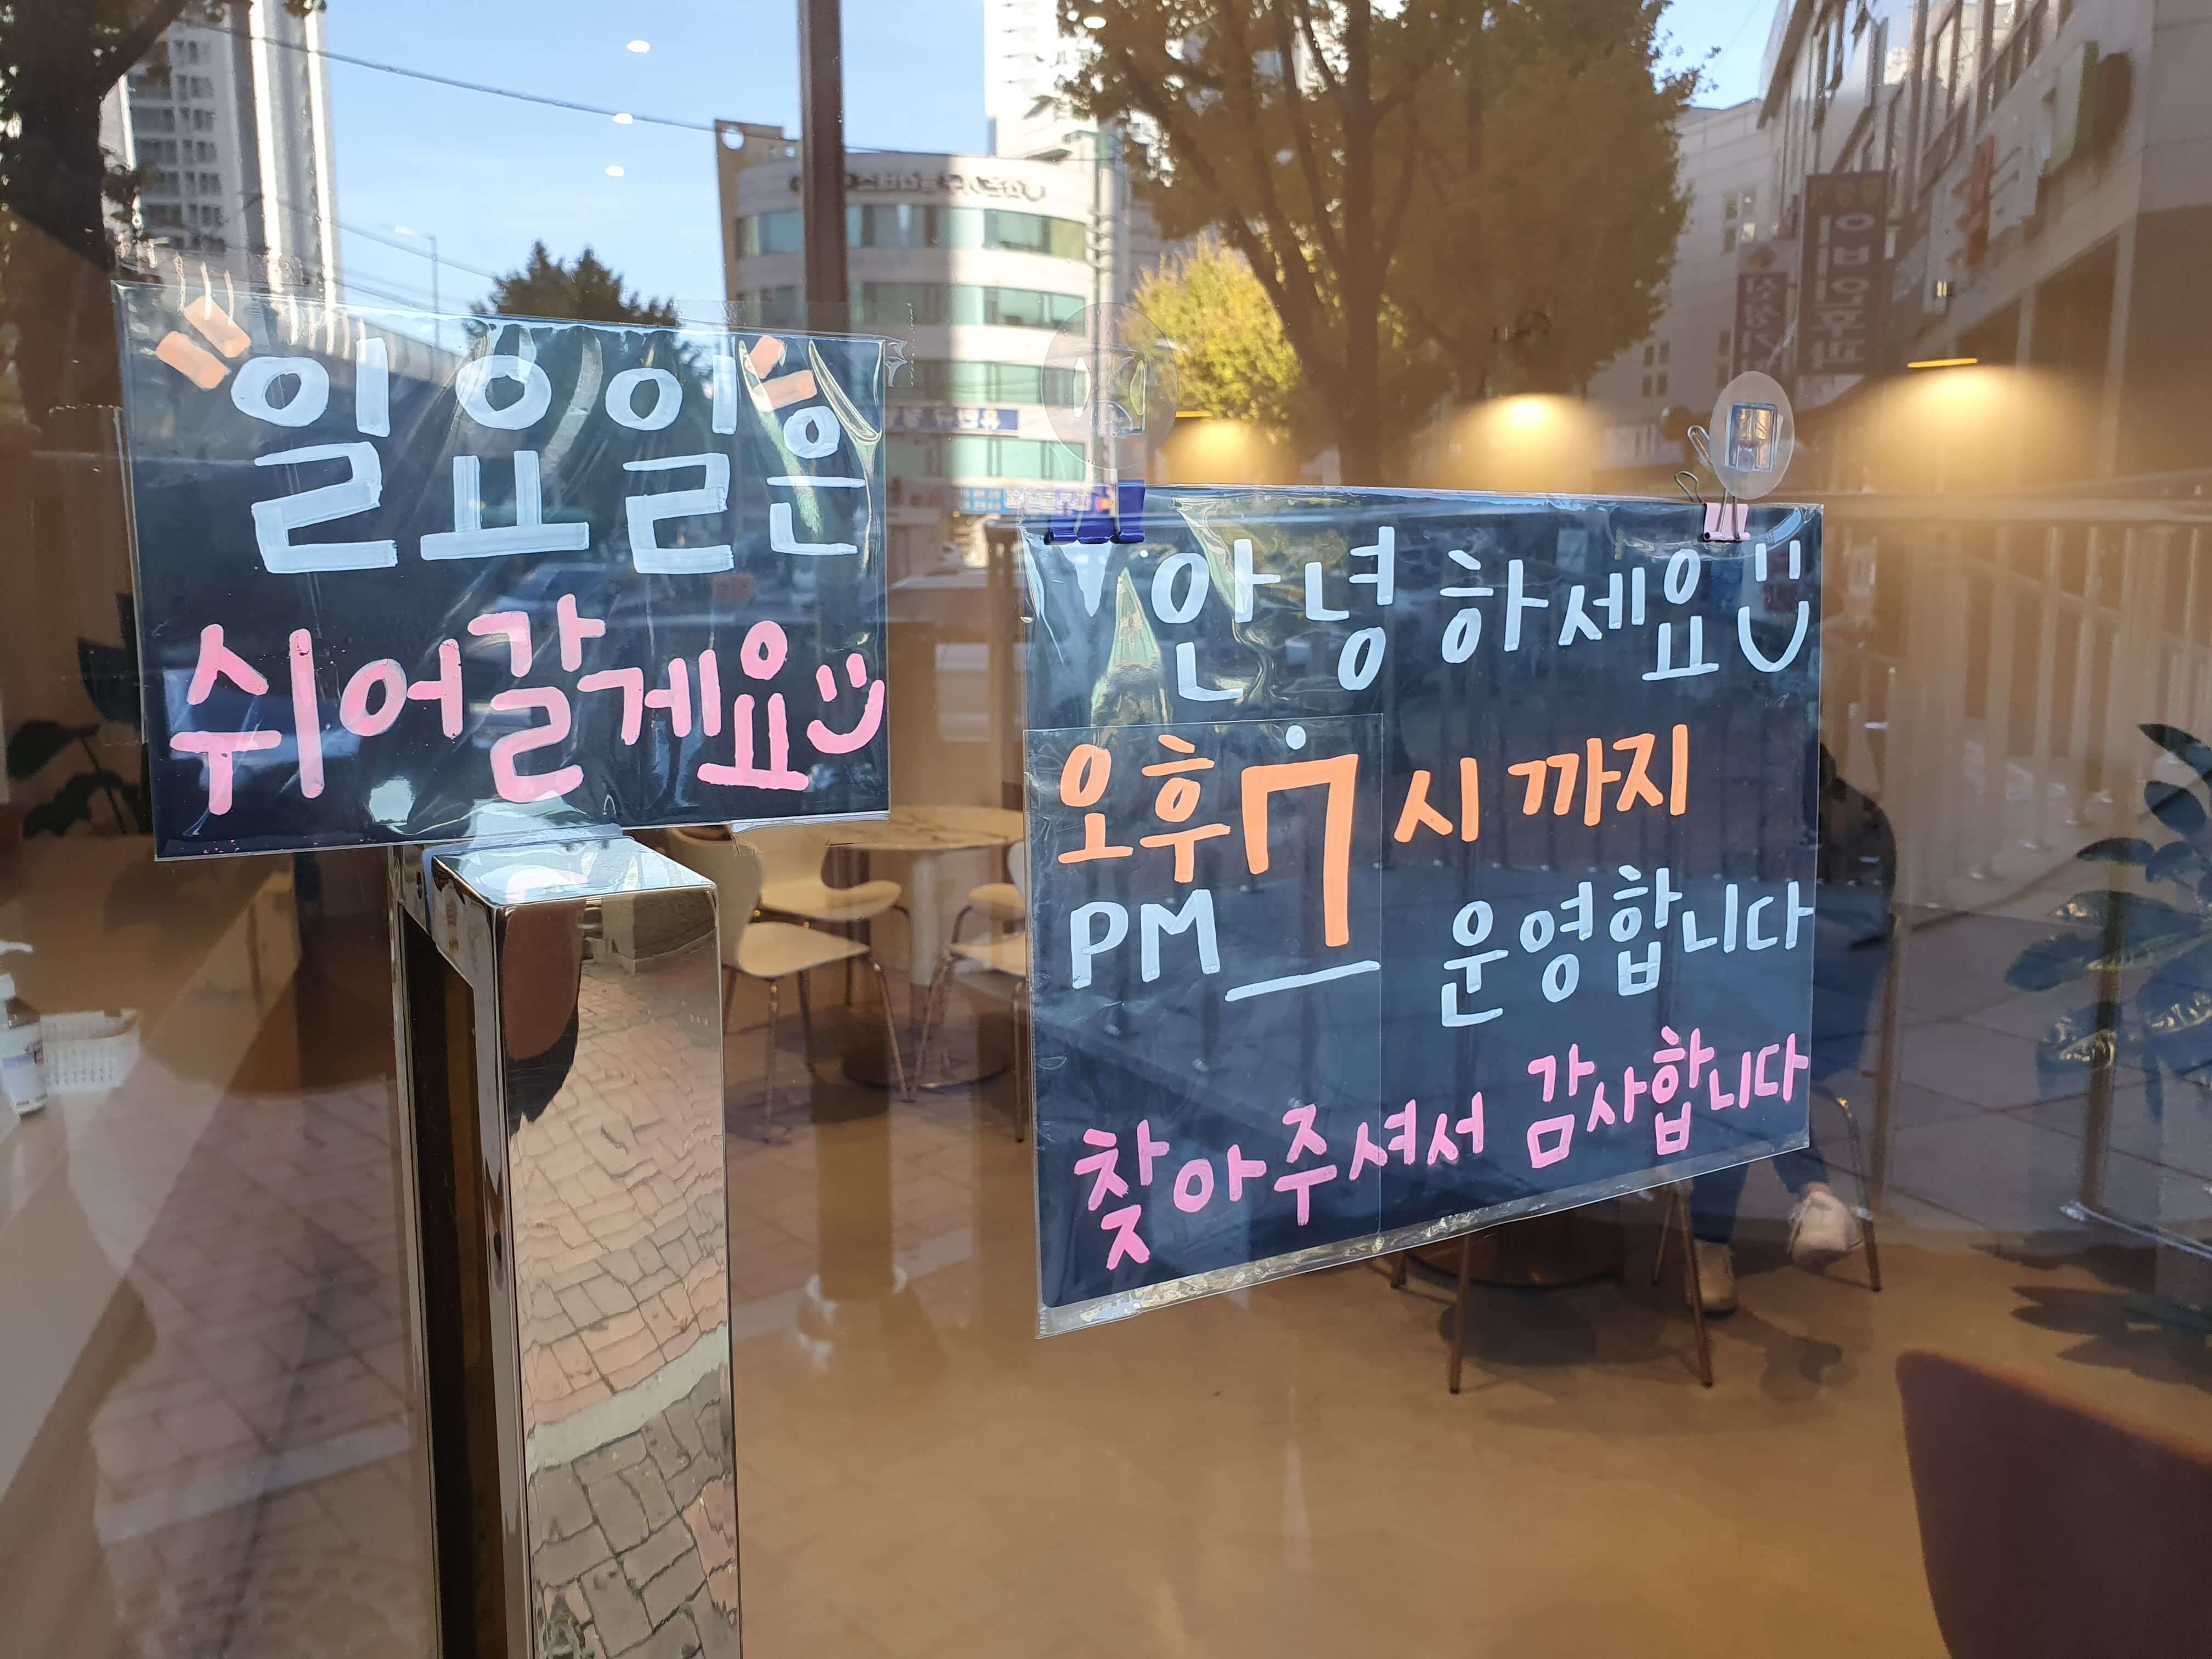 일요일은
쉬어갈게요
안녕하세요
오후 7시까지
PM 운영합니다
찾아주셔서 감사합니다